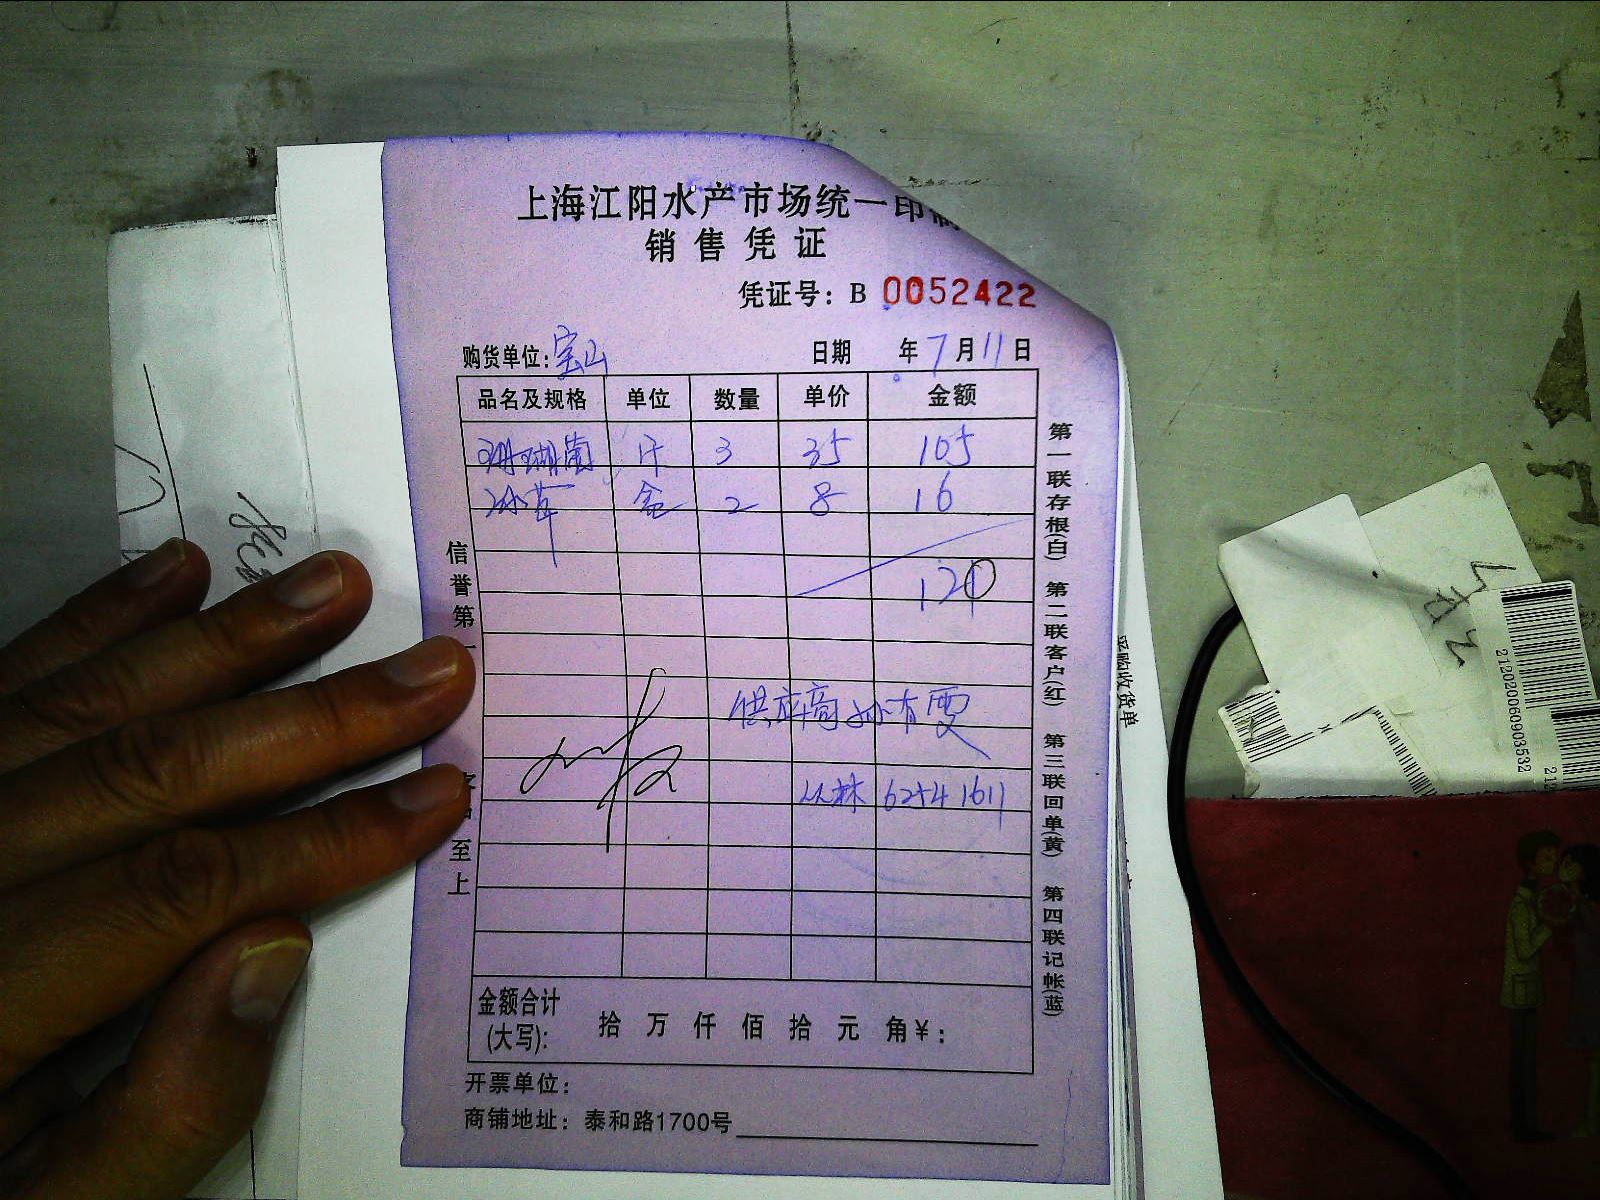 上海江阳水产市场统一印制
销售凭证
凭证号：B 0052422
购货单位：宝山 日期 年7月11日
品名及规格 单位 数量 单价 金额
珊瑚菌 斤 3 35 105
冰草 盒 2 8 16
120
供应商
丛林 62541611
金额合计
(大写)： 拾 万 仟 佰 拾 元 角￥：
开票单位：
商铺地址：泰和路1700号
信誉第一
至上
第一联存根(白) 第二联客户(红) 第三联回单(黄) 第四联记帐(蓝)
采购收货单
2120206090353​2
212